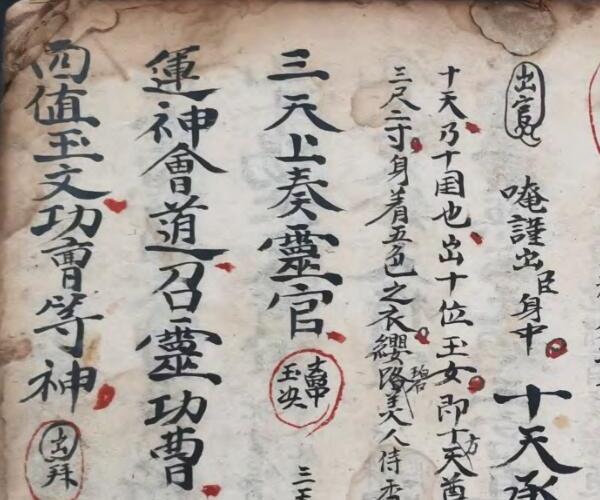 出官
唵謹出臣身中 十天
十天乃十国也出十位玉女即十方天尊
三尺二寸身着五色之衣纓珞碧美人侍香
三天上奏靈官
玉
三天
運神會道召靈功曹
四值玉文功曹等神
出拜